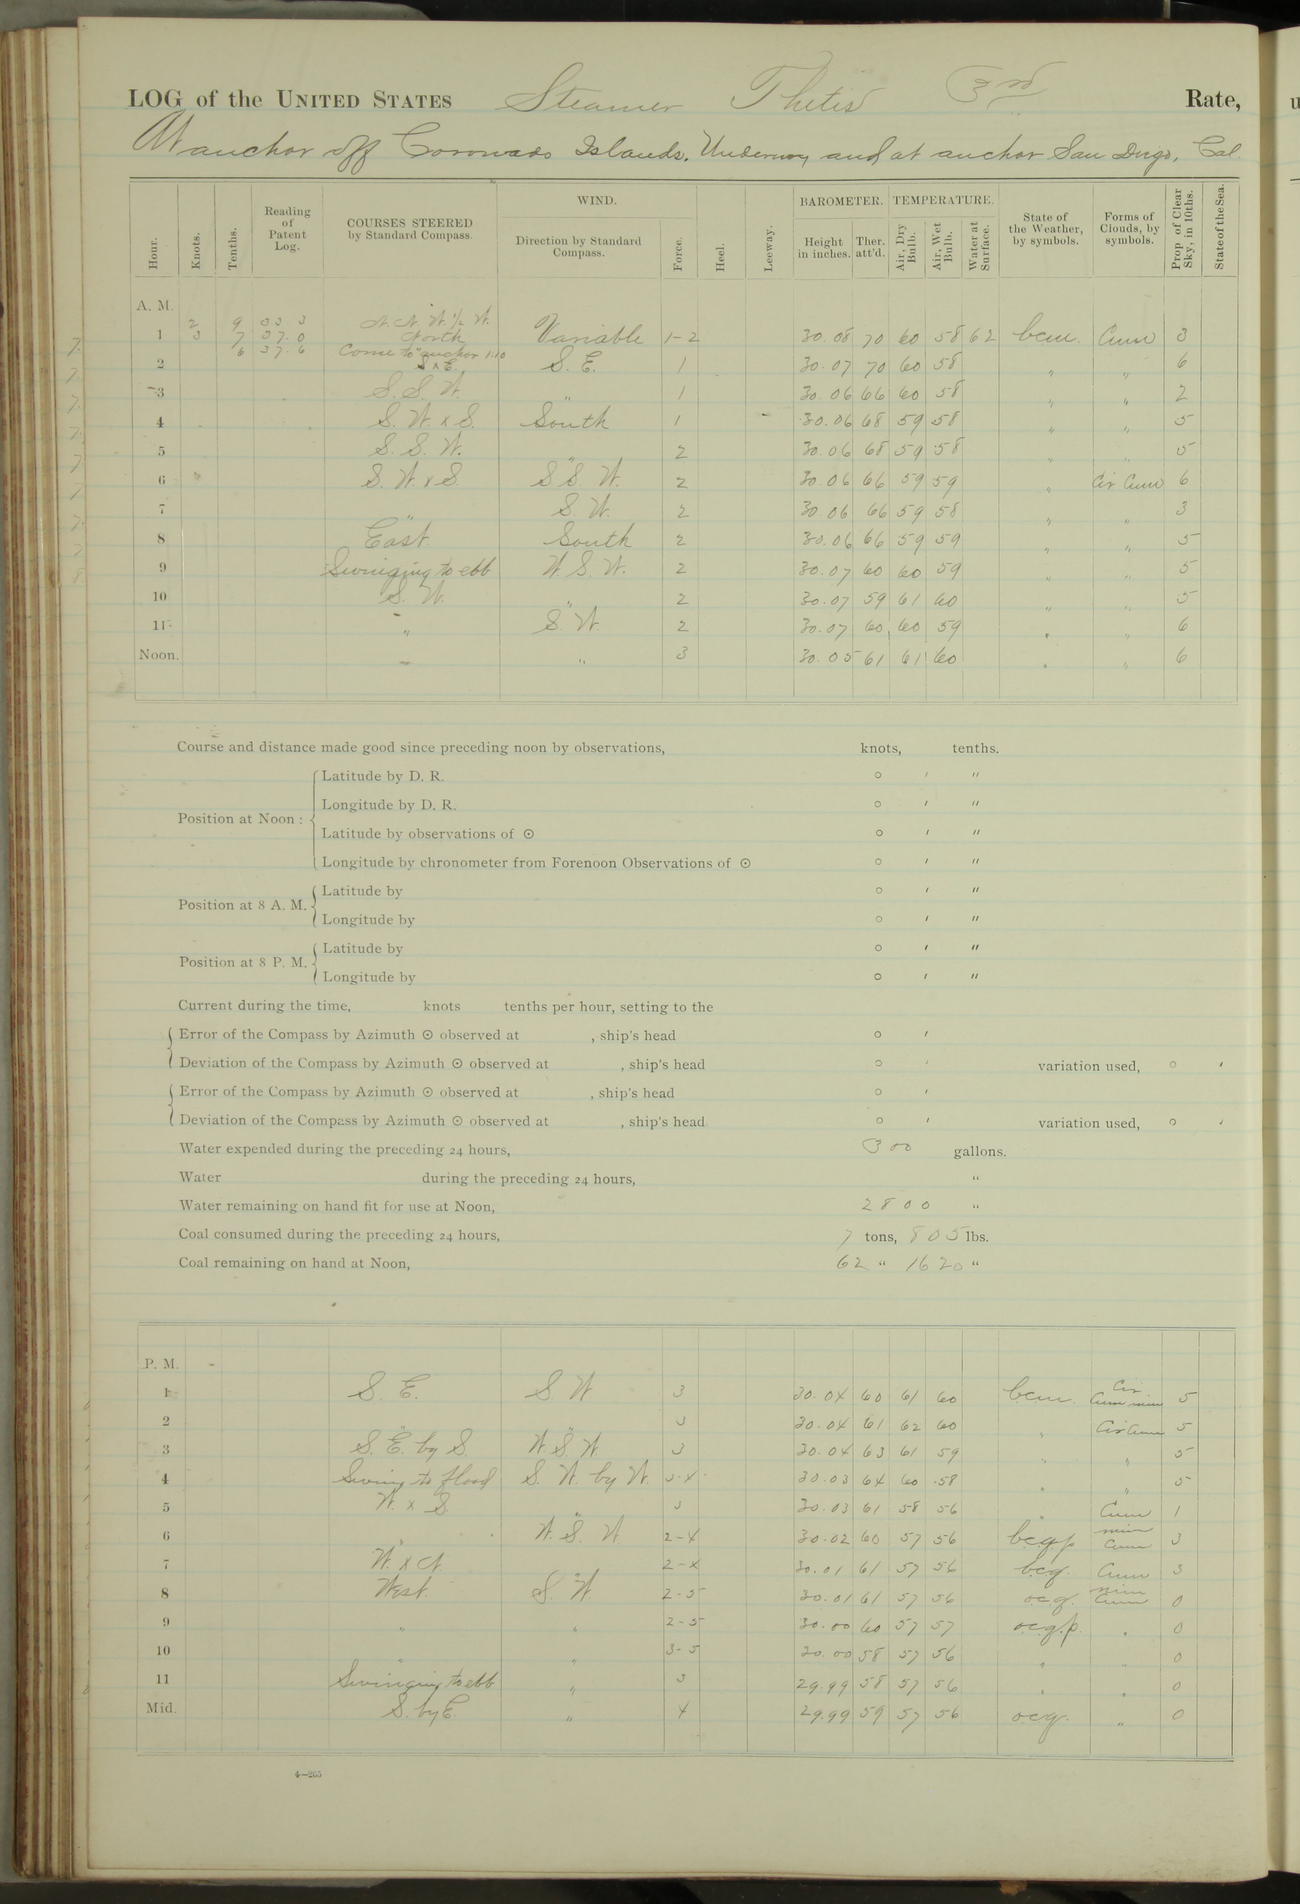 LOG of the UNITED STATES Steamer Thetis 3rd Rate,
At anchor off Coronado Islands, Underway and at anchor San Diego, Cal.
Hour. Knots. Tenths. Reading of Patent Log. COURSES STEERED by Standard Compass. WIND. Direction by Standard Compass. Force. Heel. Leeway. BAROMETER. Height in inches. Ther. att'd. TEMPERATURE. Air, Dry Bulb. Air, Wet Bulb. Water at Surface. State of the Weather, by symbols. Forms of Clouds, by symbols. Prop. of Clear Sky, in 10ths. State of the Sea.
A. M.
2 9 33 3 N. N. W. 1/2 W.
1 3 7 37.0 North Variable 1-2 30.08 70 60 58 62 bcm. Cum 3
6 37.6 Come to anchor 1:10
2 S x E. S. E. 1 30.07 70 60 58 " " 6
3 S. S. W. " 1 30.06 66 60 58 " " 2
4 S. W. x S. South 1 30.06 68 59 58 " " 5
5 S. S. W. " 2 30.06 68 59 58 " " 5
6 S. W x S. S S. W. 2 30.06 66 59 59 " Cir Cum 6
7 " S. W. 2 30 06 66 59 58 " " 3
8 East South 2 30.06 66 59 59 " " 5
9 Swinging to ebb W S. W. 2 30.07 60 60 59 " " 5
10 S. W. " 2 30.07 59 61 60 " " 5
11 " S. W. 2 30.07 60 60 59 " " 6
Noon. " " 3 30.05 61 61 60 " " 6
Course and distance made good since preceding noon by observations, knots, tenths.
Position at Noon: Latitude by D. R. ° ′ ″
Longitude by D. R. ° ′ ″
Latitude by observations of ☉ ° ′ ″
Longitude by chronometer from Forenoon Observations of ☉ ° ′ ″
Position at 8 A. M. Latitude by ° ′ ″
Longitude by ° ′ ″
Position at 8 P. M. Latitude by ° ′ ″
Longitude by ° ′ ″
Current during the time, knots tenths per hour, setting to the
Error of the Compass by Azimuth ☉ observed at , ship's head ° ′
Deviation of the Compass by Azimuth ☉ observed at , ship's head ° ′ variation used, ° ′
Error of the Compass by Azimuth ☉ observed at , ship's head ° ′
Deviation of the Compass by Azimuth ☉ observed at , ship's head ° ′ variation used, ° ′
Water expended during the preceding 24 hours, 300 gallons.
Water during the preceding 24 hours, "
Water remaining on hand fit for use at Noon, 2800 "
Coal consumed during the preceding 24 hours, 7 tons, 805 lbs.
Coal remaining on hand at Noon, 62 " 1620 "
P. M.
1 S. E. S W 3 30.04 60 61 60 bcm. Cir Cum nim 5
2 " " 3 30.04 61 62 60 " Cir Cum 5
3 S. E. by S. W S. W 3 30.04 63 61 59 " " 5
4 Swing to flood S. W. by W. 3-4 30.03 64 60 58 " " 5
5 W. x S. " 3 30.03 61 58 56 " Cum 1
6 " W. S. W 2-4 30.02 60 57 56 bcqp nim Cum 3
7 W. x N. " 2-4 30.01 61 57 56 bcq. Cum 3
8 West S. W. 2-5 30.01 61 57 56 ocq. nim Cum 0
9 " " 2-5 30.00 60 57 57 ocqp. " 0
10 " " 3-5 30.00 58 57 56 " " 0
11 Swinging to ebb " 3 29.99 58 57 56 " " 0
Mid. S. by E. " 4 29.99 59 57 56 ocq. " 0
4—265